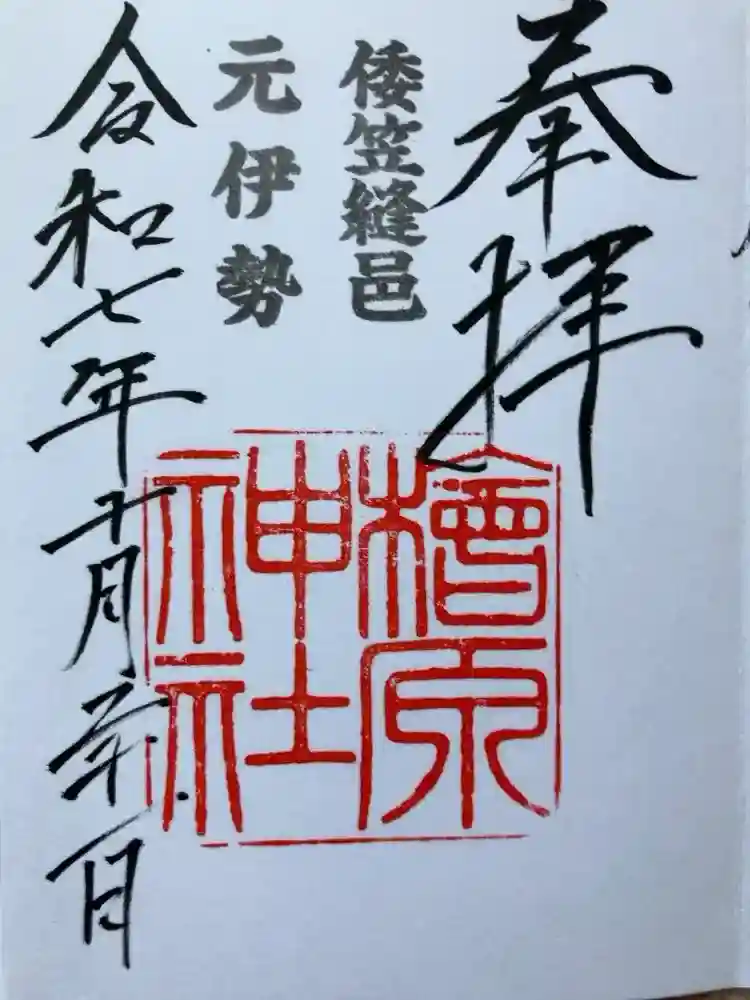 奉拝
倭笠縫邑
元伊勢
檜原
神社
令和七年十月二十日